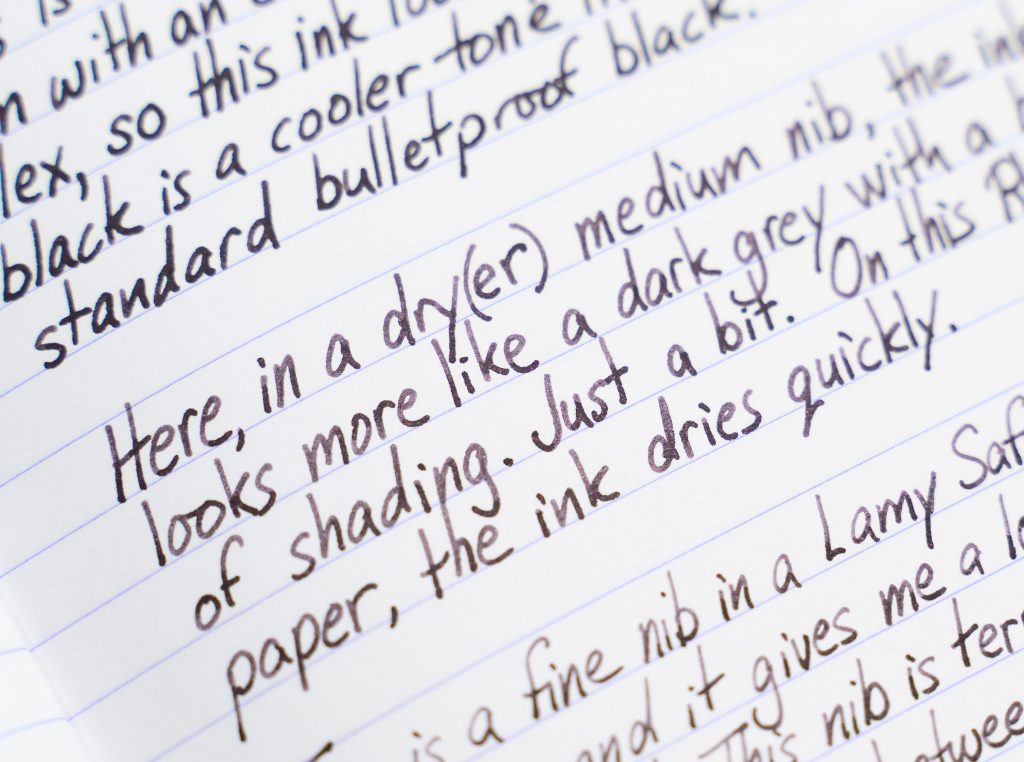 is
with an
lex, so this ink
black is a cooler tone
standard bulletproof black.
Here, in a dry(er) medium nib, the ink
looks more like a dark grey with a
of shading. Just a bit. On this
paper, the ink dries quickly.
is a fine nib in a Lamy
and it gives me a
This nib is